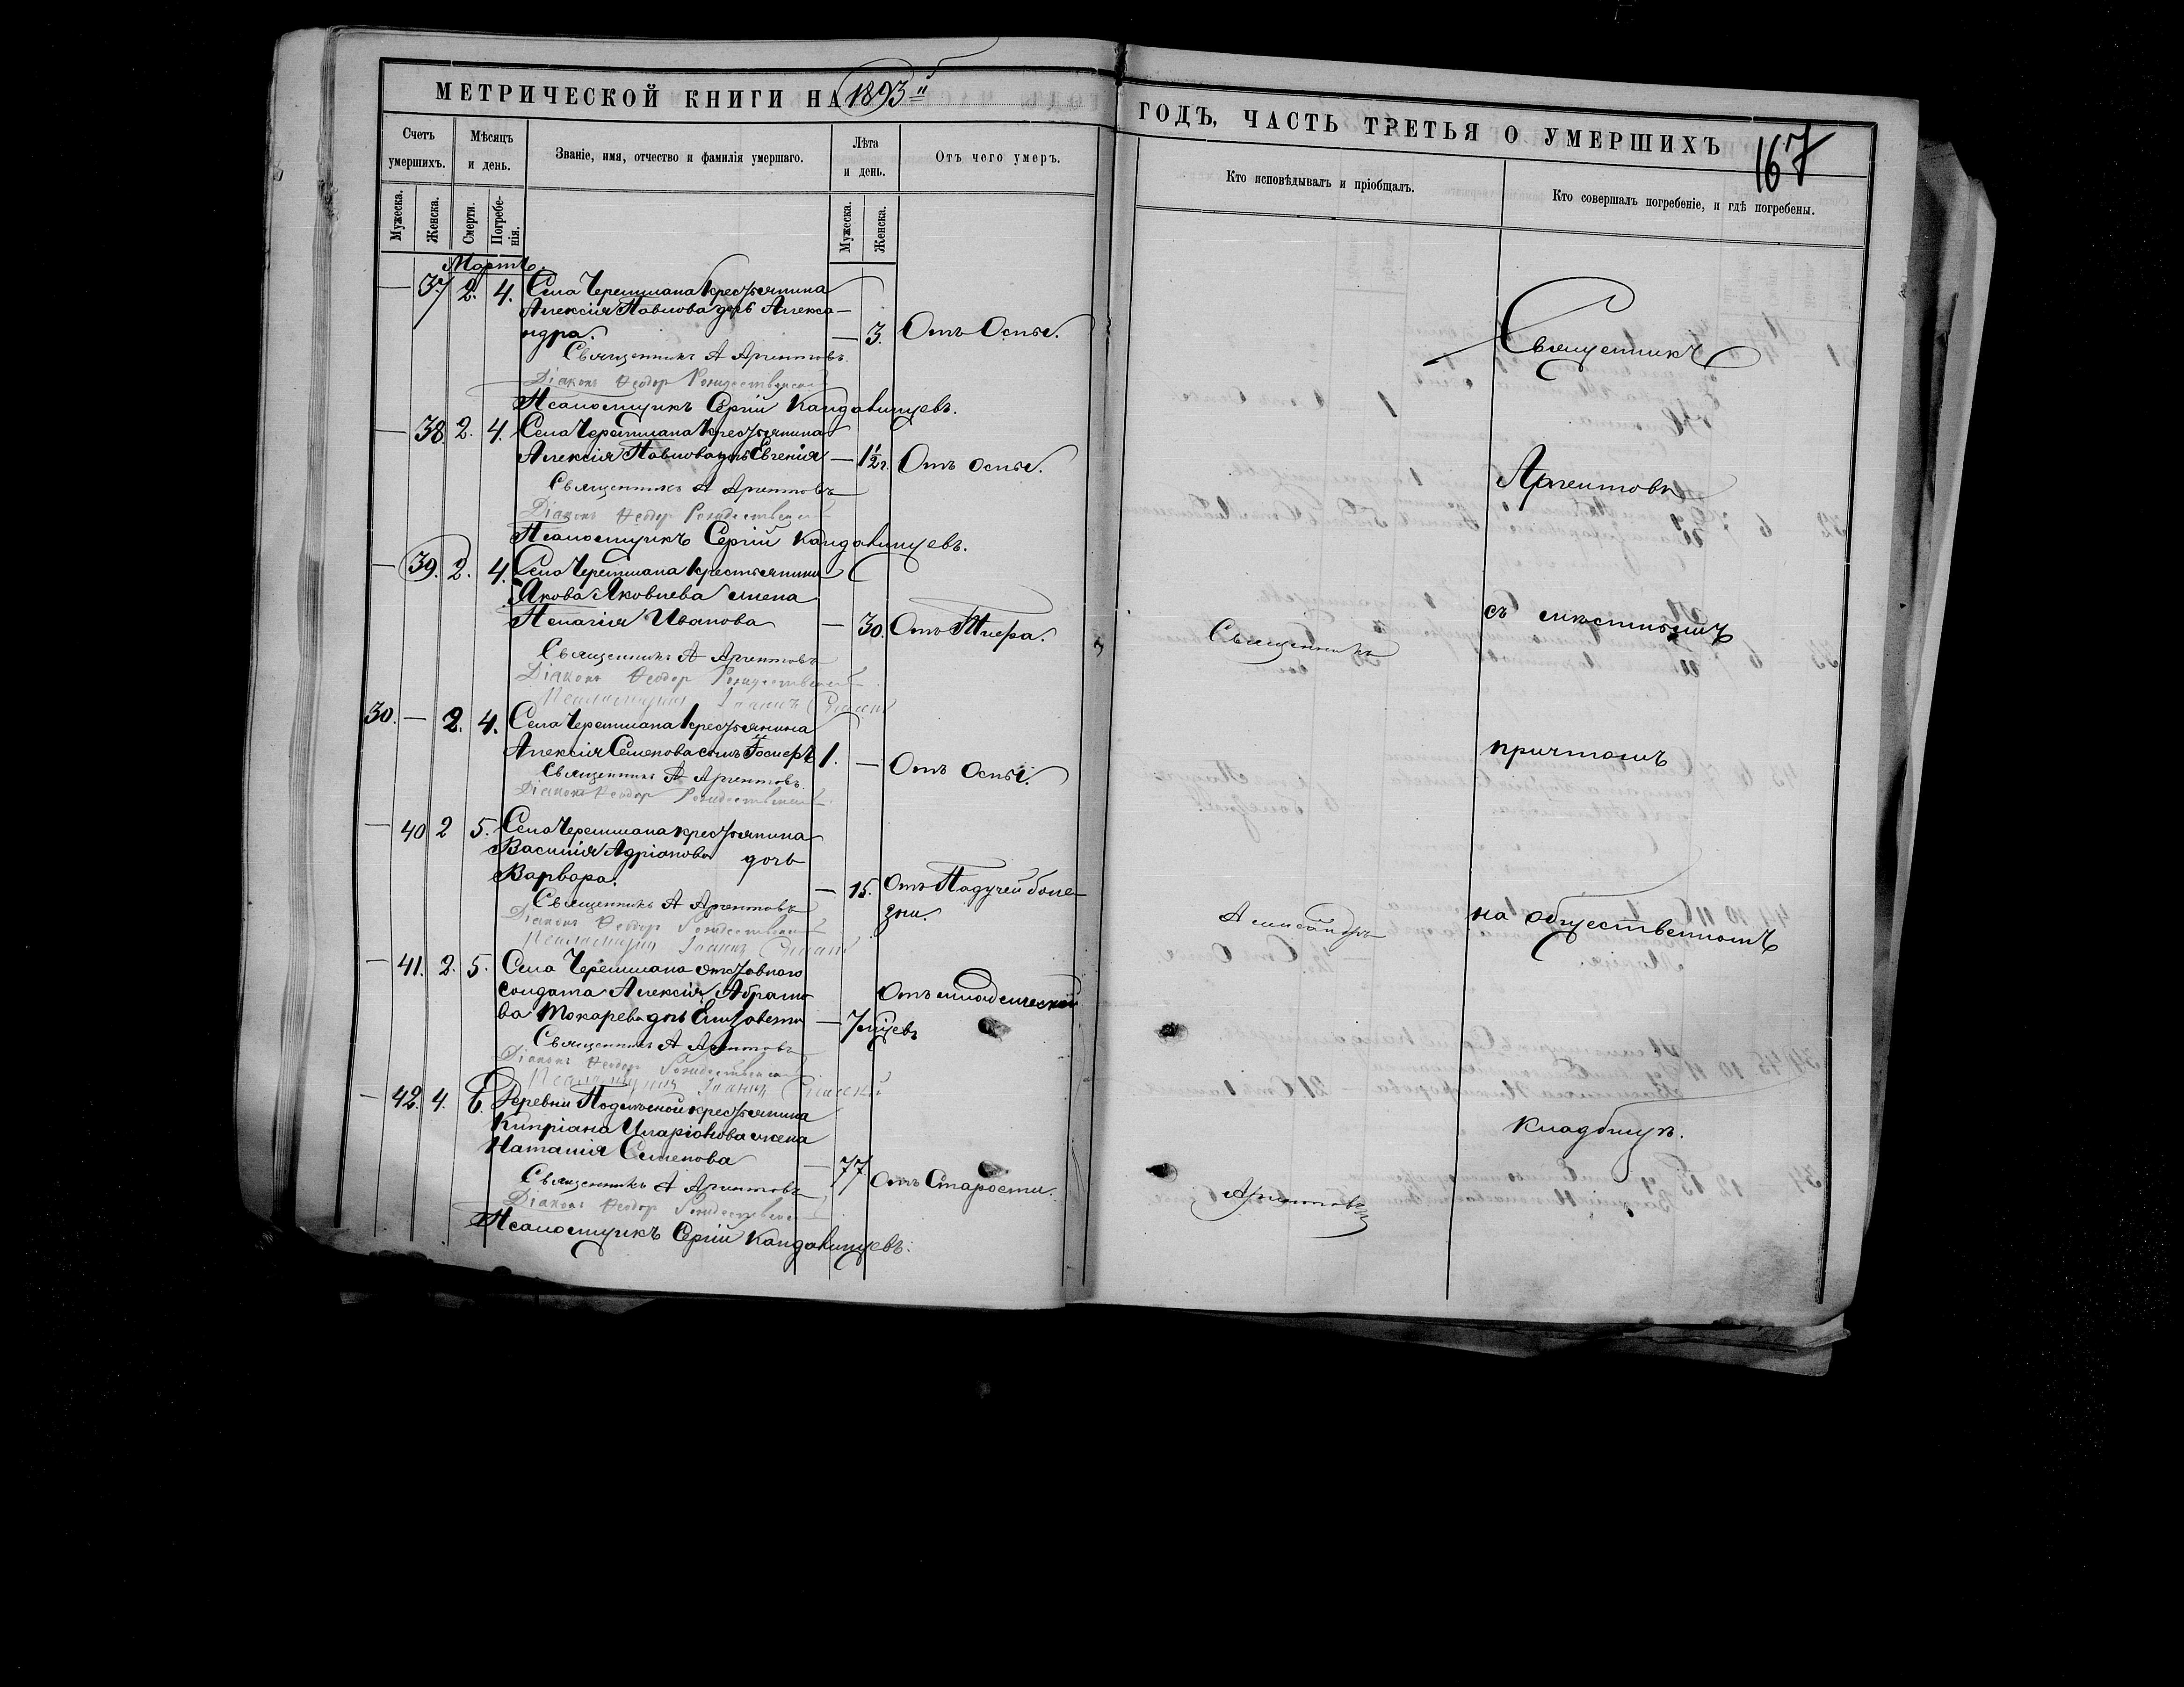 МЕТРИЧЕСКОЙ КНИГИ НА 1893й
ГОДЪ, ЧАСТЬ ТРЕТЬЯ О УМЕРШИХЪ
167
Счетъ умершихъ.
Мѣсяцъ и день.
Званіе, имя, отчество и фамилія умершаго.
Лѣта и день.
Отъ чего умеръ.
Кто исповѣдывалъ и пріобщалъ.
Кто совершалъ погребеніе, и гдѣ погребены.
Мужеска.
Женска.
Смерти.
Погребенія.
Мужеска.
Женска.
Мартъ.
— 37 2. 4. Села Черемшана крестьянина
Алексія Павлова дочь Алекса-
ндра. — 3. Отъ Оспы.
Священникъ А Аргентовъ.
Діаконъ Феодор Рождественскій
Псаломщикъ Сергій Кандалинцевъ.
— 38. 2. 4. Села Черемшана крестьянина
Алексія Павлова дочь Евгенія — 1½ г. Отъ оспы.
Священникъ А Аргентовъ
Діаконъ Феодор Рождественскій
Псаломщикъ Сергій Кандалинцевъ.
— 39. 2. 4. Села Черемшана крестьянина
Якова Яковлева жена
Пелагія Иванова — 30. Отъ Тифа.
Священникъ А Аргентовъ
Діаконъ Феодор Рождественскій
Псаломщикъ Іоаннъ
30. — 2. 4. Села Черемшана крестьянина
Алексія Семенова сынъ Іосифъ 1. — Отъ Оспы.
Священникъ А Аргентовъ.
Діаконъ Феодор Рождественскій
— 40 2 5. Села Черемшана крестьянина
Василія Адріанова дочь
Варвара. — 15. Отъ Падучей боле-
зни.
Священникъ А Аргентовъ
Діаконъ Феодор Рождественскій
Псаломщикъ Іоаннъ
— 41. 2. 5. Села Черемшана отставного
солдата Алексія Абрамо-
ва Токарева дочь Елизавета — 7 мѣсяцевъ Отъ младенческой
Священникъ А Аргентовъ
Діаконъ Феодор Рождественскій
Псаломщикъ Іоаннъ
— 42. 4. 6. Деревни крестьянина
Кипріана Иларіонова жена
Наталія Семенова — 77 Отъ Старости.
Священникъ А Аргентовъ
Діаконъ Феодор Рождественскій
Псаломщикъ Сергій Кандалинцевъ.
Священникъ
Александръ
Аргентовъ
Священникъ
Аргентовъ
съ мѣстнымъ
причтомъ
на общественномъ
кладбищѣ.